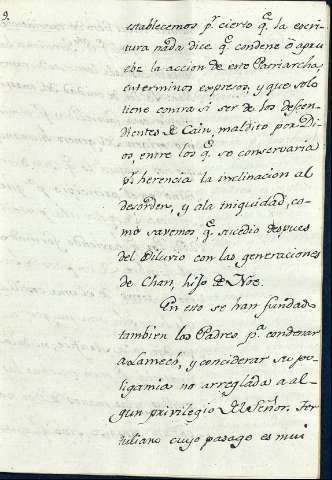 9.
establecemos p.r cierto q.e la escri
tura nada dice q.e condene ô apru
ebe la accion de este Patriarcha,
en terminos expresos, y que solo
tiene contra sí ser de los descen-
dientes de Cain, maldito por Di-
os, entre los q.e se conservaria
p.r herencia la inclinacion al
desorden, y a la iniquidad, co-
mo savemos q.e sucedio despues
del Diluvio con las generaciones
de Chan, hijo de Noe.
En esto se han fundado
tambien los Padres p.a condenar
a Lamech, y conciderar su po-
ligamia no arreglada a al-
gun privilegio del Señor. Ter
tuliano cuyo pasage es mui